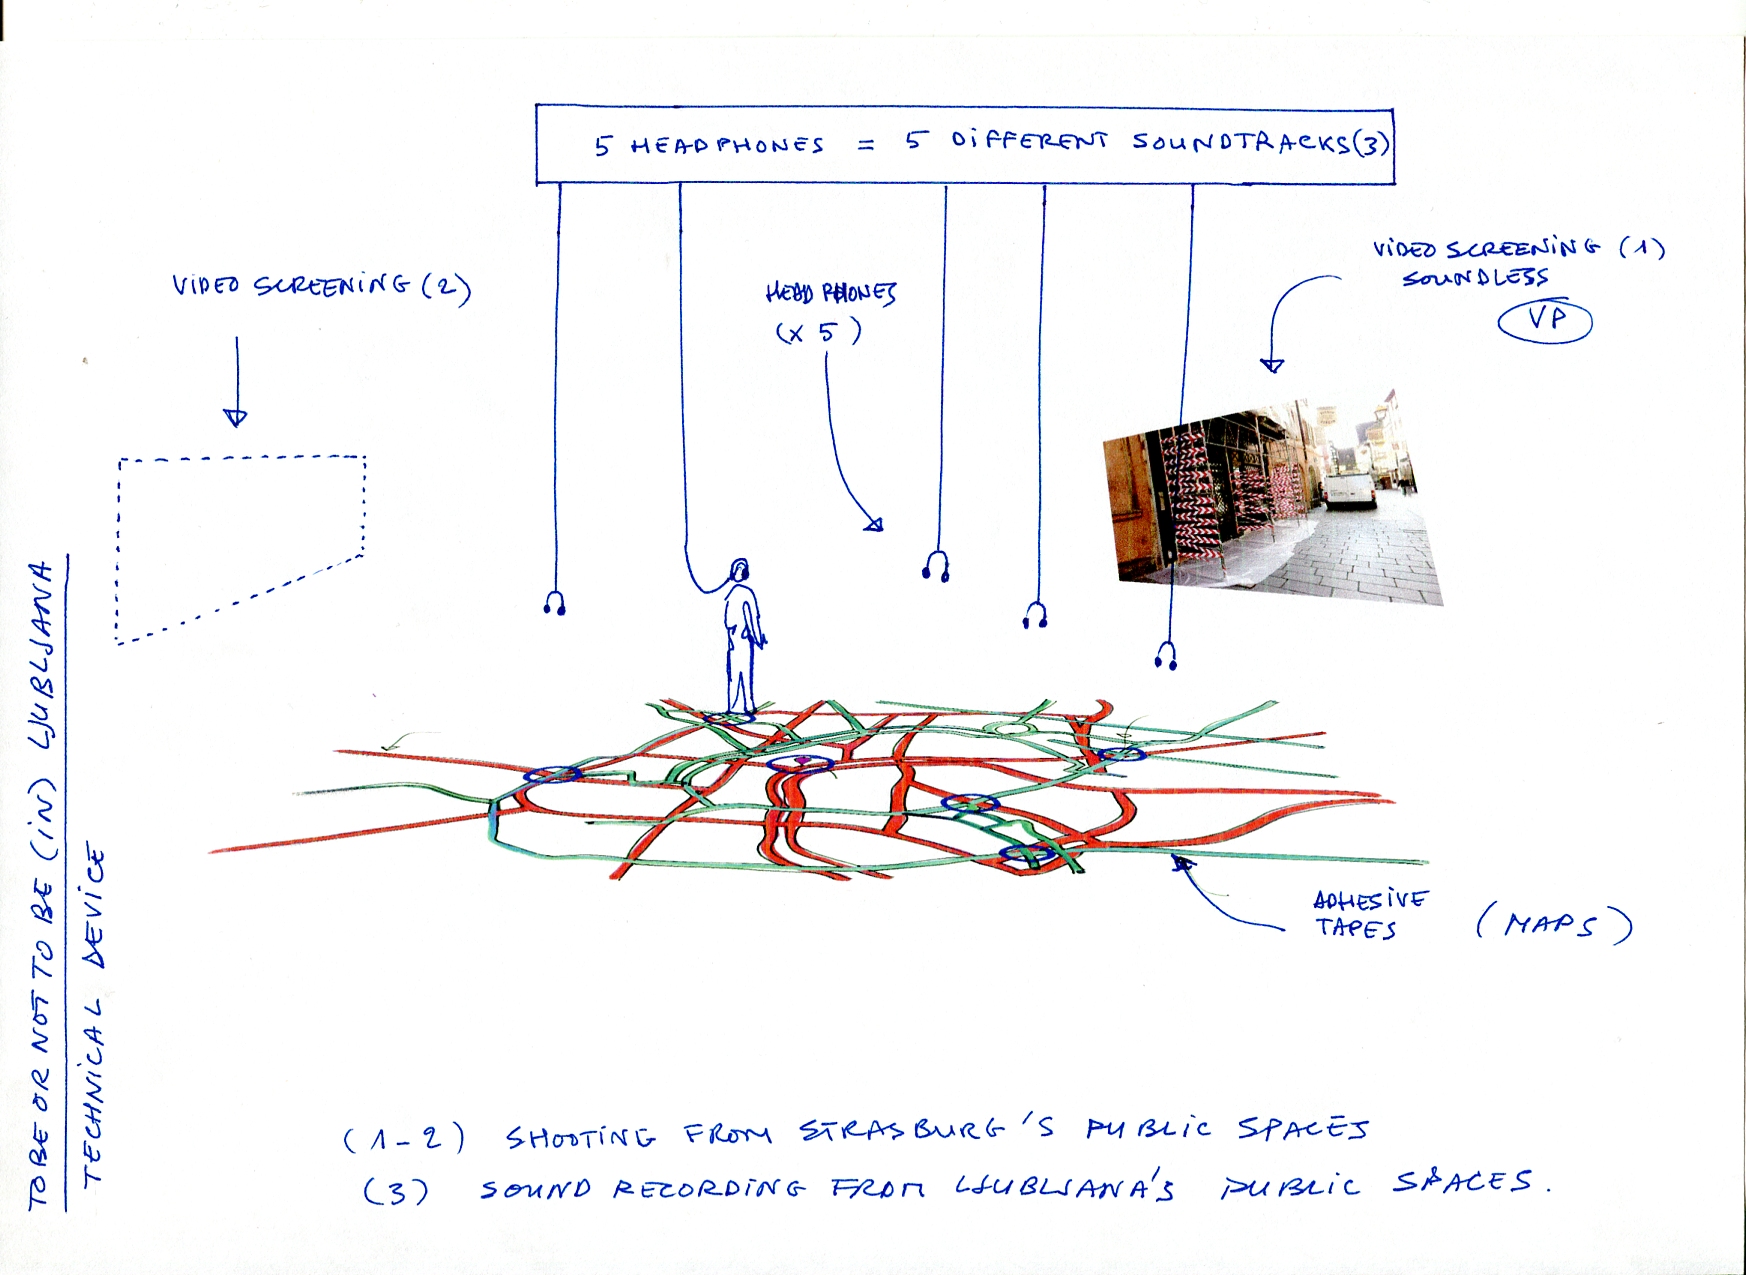 5 HEADPHONES = 5 DiFFERENT SOUNDTRACKS(3)
ViDEO SCREENiNG (2)
HEADPHONES
(X 5)
ViDEO SCREENiNG (1)
SOUNDLESS
VP
ADHESiVE
TAPES
(MAPS)
TO BE OR NOT TO BE (iN) LJUBLJANA
TECHNiCAL DEViCE
(1-2) SHOOTiNG FROM STRASBURG'S PUBLiC SPACES
(3) SOUND RECORDiNG FROM LJUBLJANA'S PUBLiC SPACES.